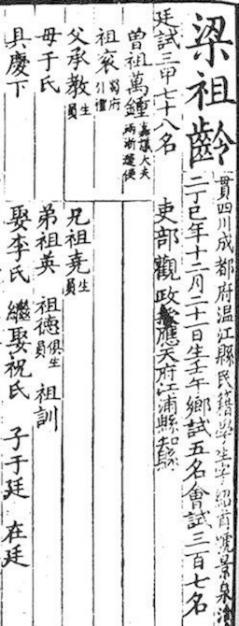 梁祖齡
貫四川成都府温江縣民籍學生字紹首號景泉治
二丁巳年十二月二十一日生壬午鄉試五名會試三百七名
廷試三甲七十八名 吏部觀政 應天府江浦縣知縣
曾祖萬鍾嘉議大夫兩浙運使
祖衮蜀府引禮
父承教生員 兄祖堯生員
母于氏 弟祖英 祖德俱生員 祖訓
具慶下 娶李氏 繼娶祝氏 子于廷 在廷